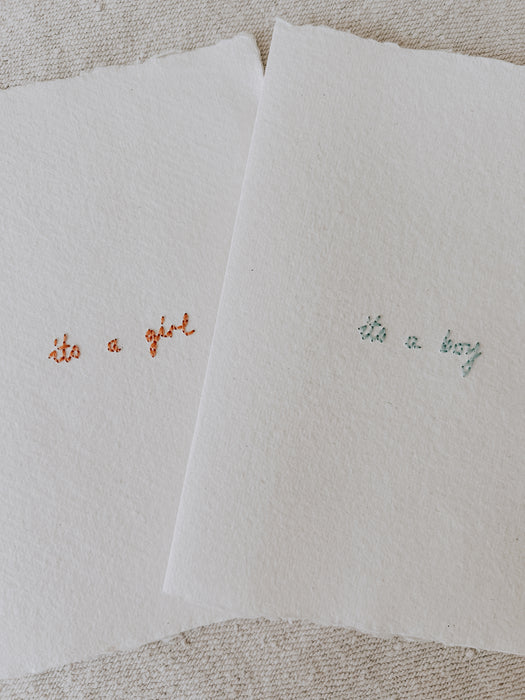 its a girl
its a boy